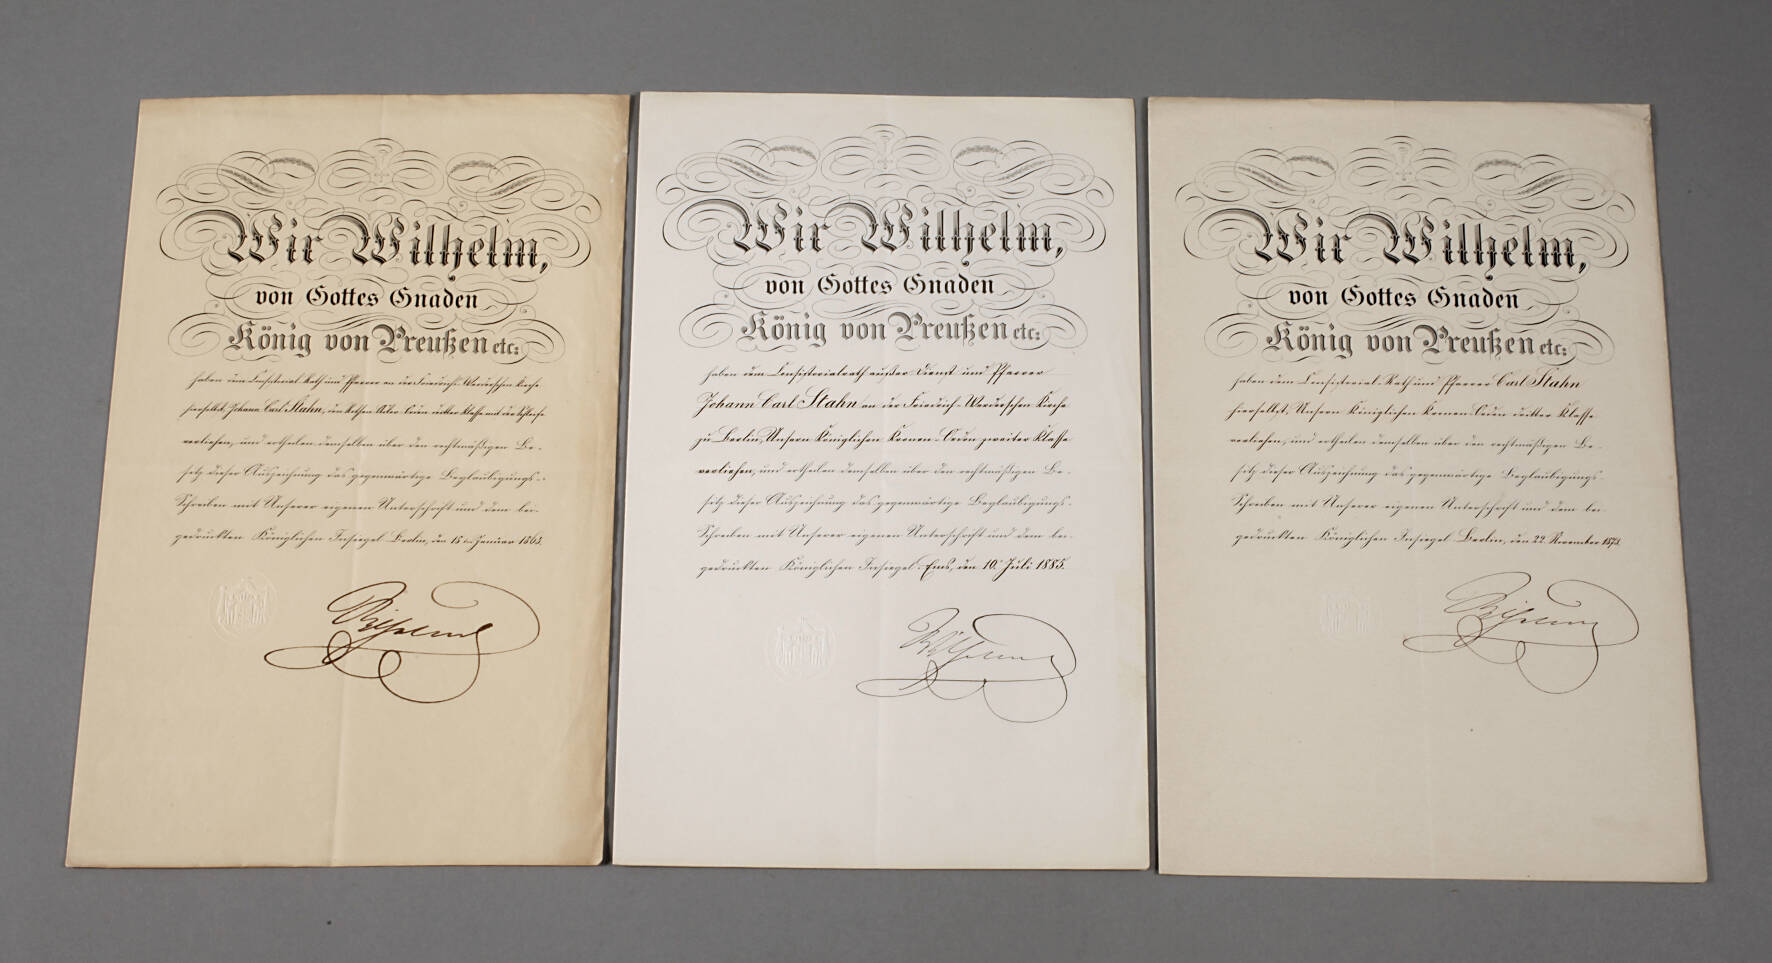 Wir Wilhelm,
von Gottes Gnaden
König von Preußen etc:
haben dem Consistorial-Rath und Pfarrer an der Friedrich-Werderschen Kirche
hierselbst, Johann Carl Stahn, den Rothen Adler-Orden dritter Klasse mit der Schleife
verliehen, und ertheilen demselben über den rechtmäßigen Be-
sitz dieser Auszeichnung das gegenwärtige Beglaubigungs-
Schreiben mit Unserer eigenen Unterschrift und dem bei-
gedruckten Königlichen Insiegel. Berlin, den 18ten Januar
Wilhelm
Wir Wilhelm,
von Gottes Gnaden
König von Preußen etc:
haben dem Consistorialrath außer Dienst und Pfarrer
Johann Carl Stahn an der Friedrich-Werderschen Kirche
zu Berlin, Unsern Königlichen Kronen-Orden zweiter Klasse
verliehen, und ertheilen demselben über den rechtmäßigen Be-
sitz dieser Auszeichnung das gegenwärtige Beglaubigungs-
Schreiben mit Unserer eigenen Unterschrift und dem bei-
gedruckten Königlichen Insiegel. Ems, den 10. Juli 1885.
Wilhelm
Wir Wilhelm,
von Gottes Gnaden
König von Preußen etc:
haben dem Consistorial-Rath und Pfarrer Carl Stahn
hierselbst, Unsern Königlichen Kronen-Orden dritter Klasse
verliehen, und ertheilen demselben über den rechtmäßigen Be-
sitz dieser Auszeichnung das gegenwärtige Beglaubigungs-
Schreiben mit Unserer eigenen Unterschrift und dem bei-
gedruckten Königlichen Insiegel. Berlin, den 22. November
Wilhelm